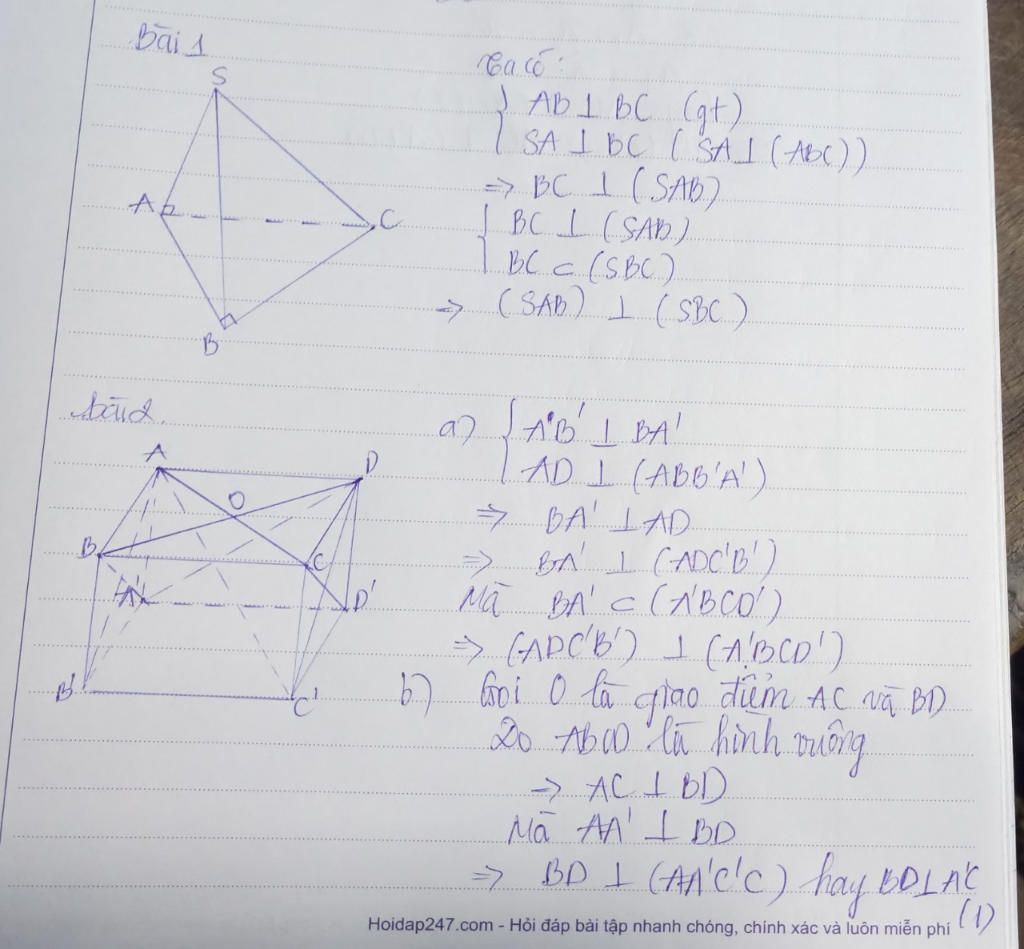 Bài 1
S
A
C
B
Ta có:
AB ⊥ BC (gt)
SA ⊥ BC (SA ⊥ (ABC))
=> BC ⊥ (SAB)
BC ⊥ (SAB)
BC ⊂ (SBC)
=> (SAB) ⊥ (SBC)
Bài 2.
A
D
O
B
C
A'
D'
B'
C'
a) A'B' ⊥ BA'
AD ⊥ (ABB'A')
=> BA' ⊥ AD
=> BA' ⊥ (ADC'B')
Mà BA' ⊂ (A'BCD')
=> (ADC'B') ⊥ (A'BCD')
b) Gọi O là giao điểm AC và BD
Do ABCD là hình vuông
=> AC ⊥ BD
Mà AA' ⊥ BD
=> BD ⊥ (AA'C'C) hay BD ⊥ A'C
(1)
Hoidap247.com - Hỏi đáp bài tập nhanh chóng, chính xác và luôn miễn phí